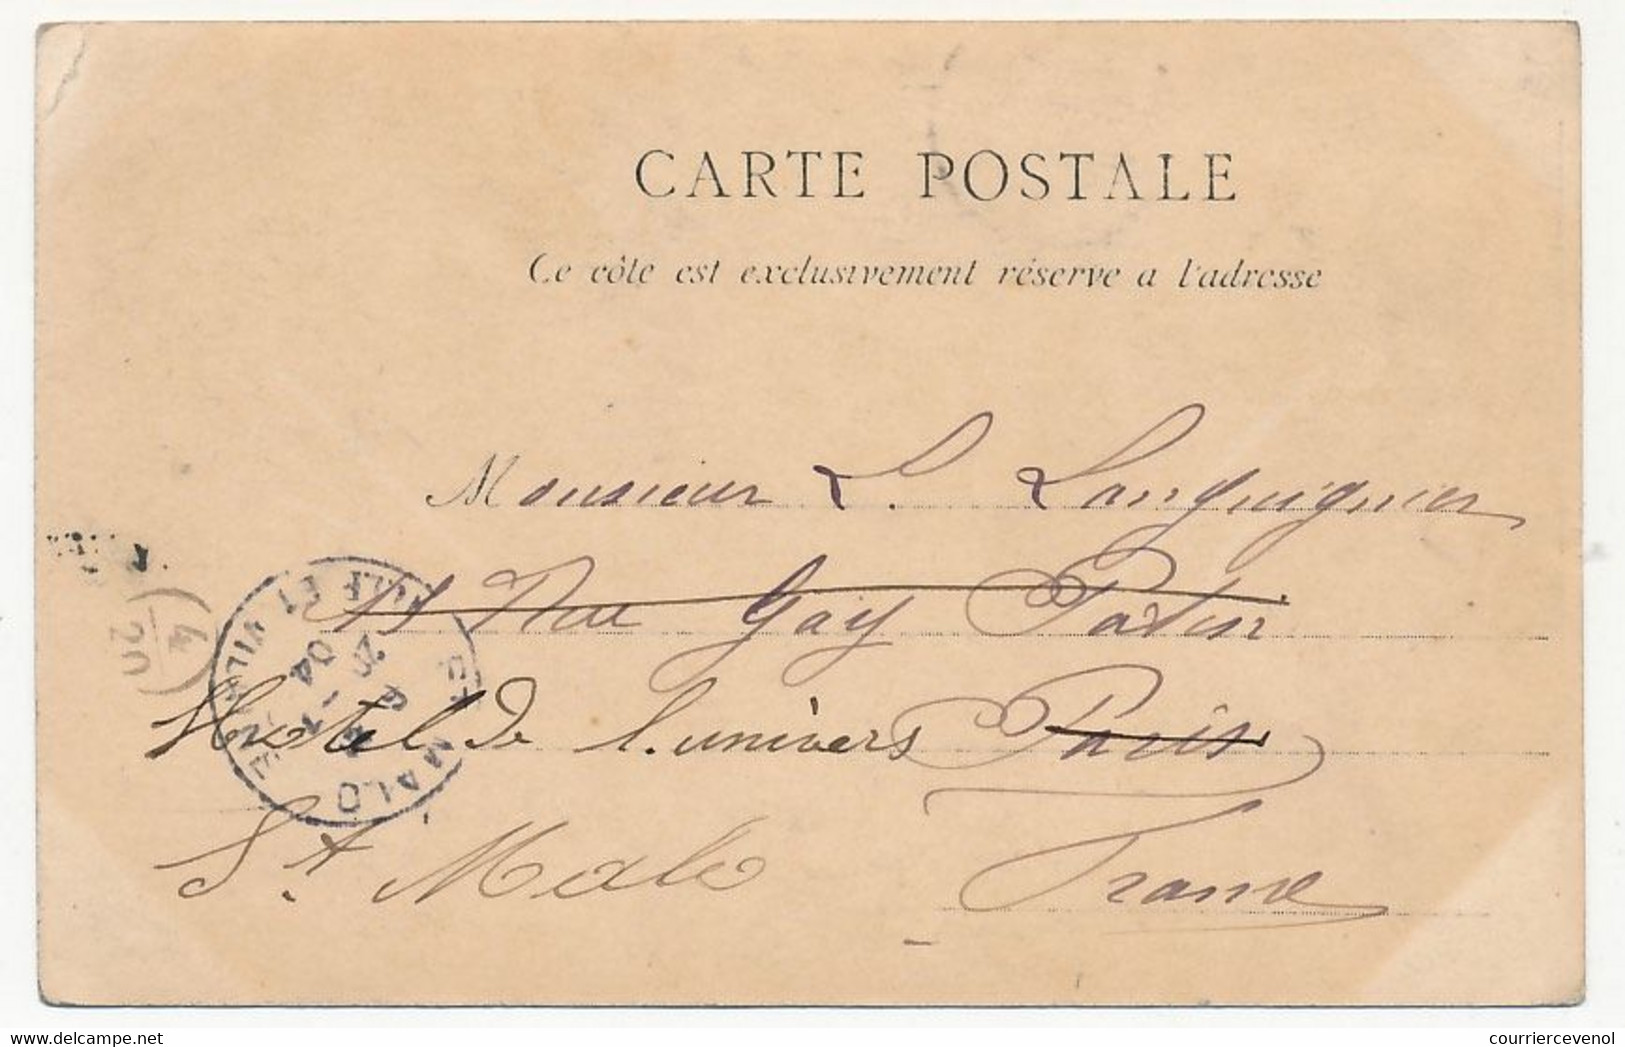 CARTE POSTALE
Ce côté est exclusivement réservé a l'adresse
Monsieur L. Languignier
11 Rue Gay Patin
Hotel de l'univers Paris
St Malo France
(4/20)
ST MALO
ILLE ET VILAINE
20 - 1
04
www.delcampe.net
courriercevenol